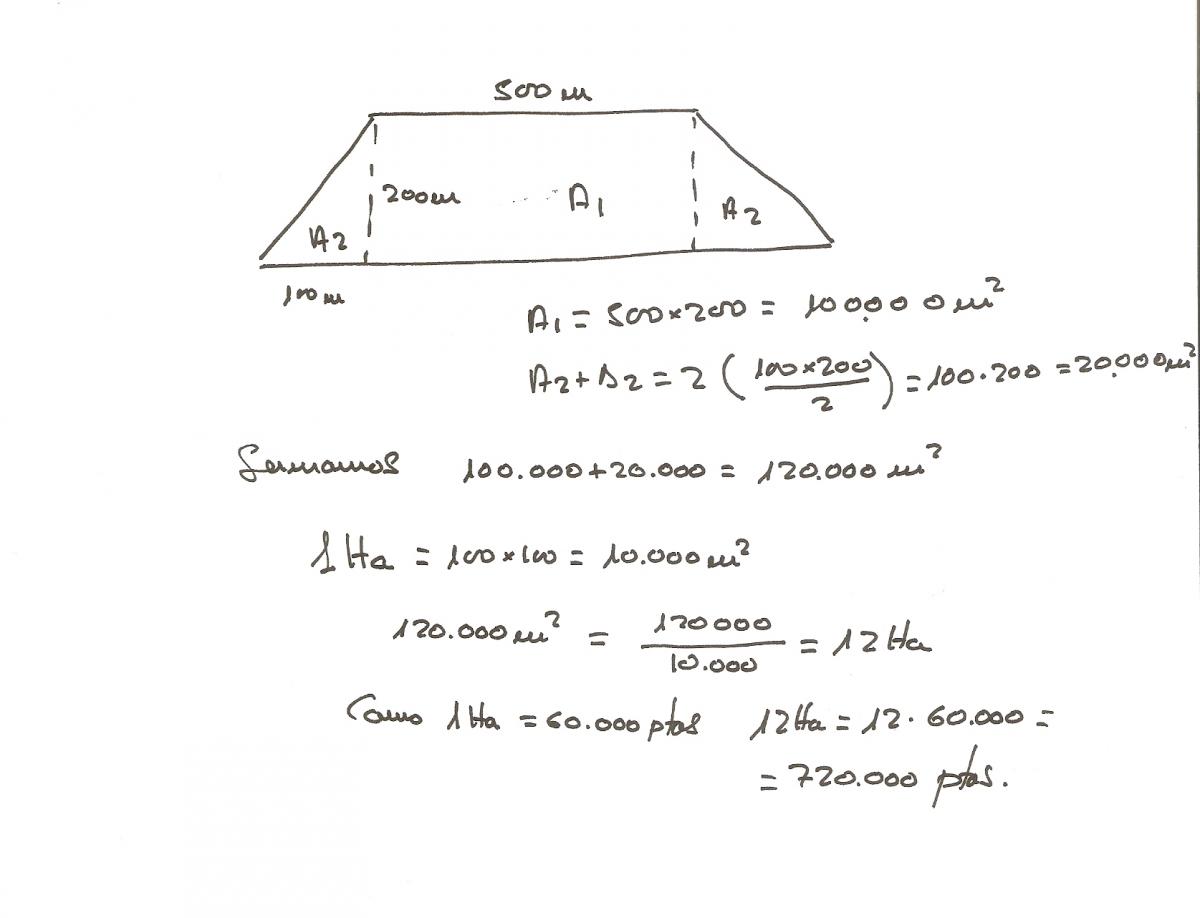 500 m
200 m A₁ A₂
A₂
100 m
A₁ = 500×200 = 100.000 m²
A₂+A₂ = 2 (100×200/2) = 100·200 = 20.000 m²
Sumamos 100.000+20.000 = 120.000 m²
1 Ha = 100×100 = 10.000 m²
120.000 m² = 120000/10.000 = 12 Ha
Como 1 Ha = 60.000 ptas 12 Ha = 12·60.000 =
= 720.000 ptas.